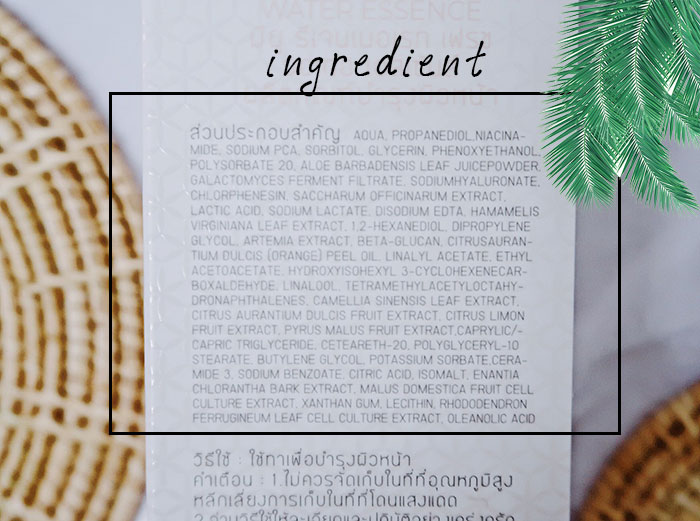 WATER ESSENCE
ingredient
ส่วนประกอบสำคัญ AQUA, PROPANEDIOL,NIACINA-
MIDE, SODIUM PCA, SORBITOL, GLYCERIN, PHENOXYETHANOL,
POLYSORBATE 20, ALOE BARBADENSIS LEAF JUICEPOWDER,
GALACTOMYCES FERMENT FILTRATE, SODIUMHYALURONATE,
CHLORPHENESIN, SACCHARUM OFFICINARUM EXTRACT,
LACTIC ACID, SODIUM LACTATE, DISODIUM EDTA, HAMAMELIS
VIRGINIANA LEAF EXTRACT, 1,2-HEXANEDIOL, DIPROPYLENE
GLYCOL, ARTEMIA EXTRACT, BETA-GLUCAN, CITRUSAURAN-
TIUM DULCIS (ORANGE) PEEL OIL, LINALYL ACETATE, ETHYL
ACETOACETATE, HYDROXYISOHEXYL 3-CYCLOHEXENECAR-
BOXALDEHYDE, LINALOOL, TETRAMETHYLACETYLOCTAHY-
DRONAPHTHALENES, CAMELLIA SINENSIS LEAF EXTRACT,
CITRUS AURANTIUM DULCIS FRUIT EXTRACT, CITRUS LIMON
FRUIT EXTRACT, PYRUS MALUS FRUIT EXTRACT,CAPRYLIC/-
CAPRIC TRIGLYCERIDE, CETEARETH-20, POLYGLYCERYL-10
STEARATE, BUTYLENE GLYCOL, POTASSIUM SORBATE,CERA-
MIDE 3, SODIUM BENZOATE, CITRIC ACID, ISOMALT, ENANTIA
CHLORANTHA BARK EXTRACT, MALUS DOMESTICA FRUIT CELL
CULTURE EXTRACT, XANTHAN GUM, LECITHIN, RHODODENDRON
FERRUGINEUM LEAF CELL CULTURE EXTRACT, OLEANOLIC ACID
วิธีใช้ : ใช้ทาเพื่อบำรุงผิวหน้า
คำเตือน : 1.ไม่ควรจัดเก็บในที่ที่อุณหภูมิสูง
หลีกเลี่ยงการเก็บในที่ที่โดนแสงแดด
2.อ่านวิธีใช้ให้ละเอียดและปฏิบัติอย่างเคร่งครัด